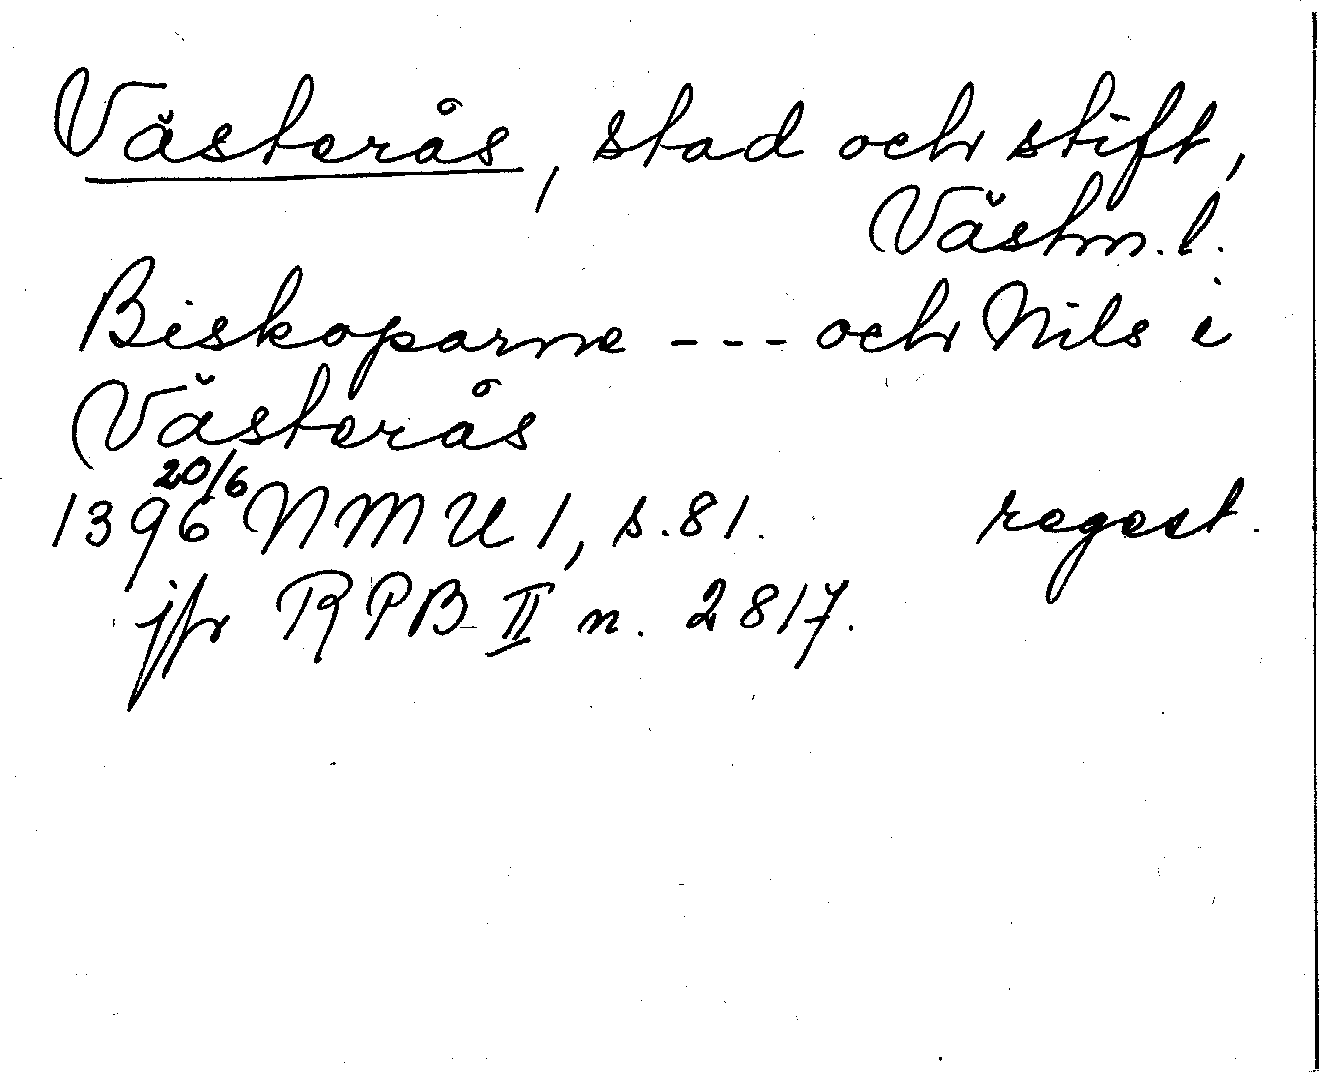 Västerås, stad och stift,
Västm.l.
Biskoparne --- och Nils i
Västerås
20/6
1396 NMU 1, s.81. regest.
jfr RPB II n. 2817.